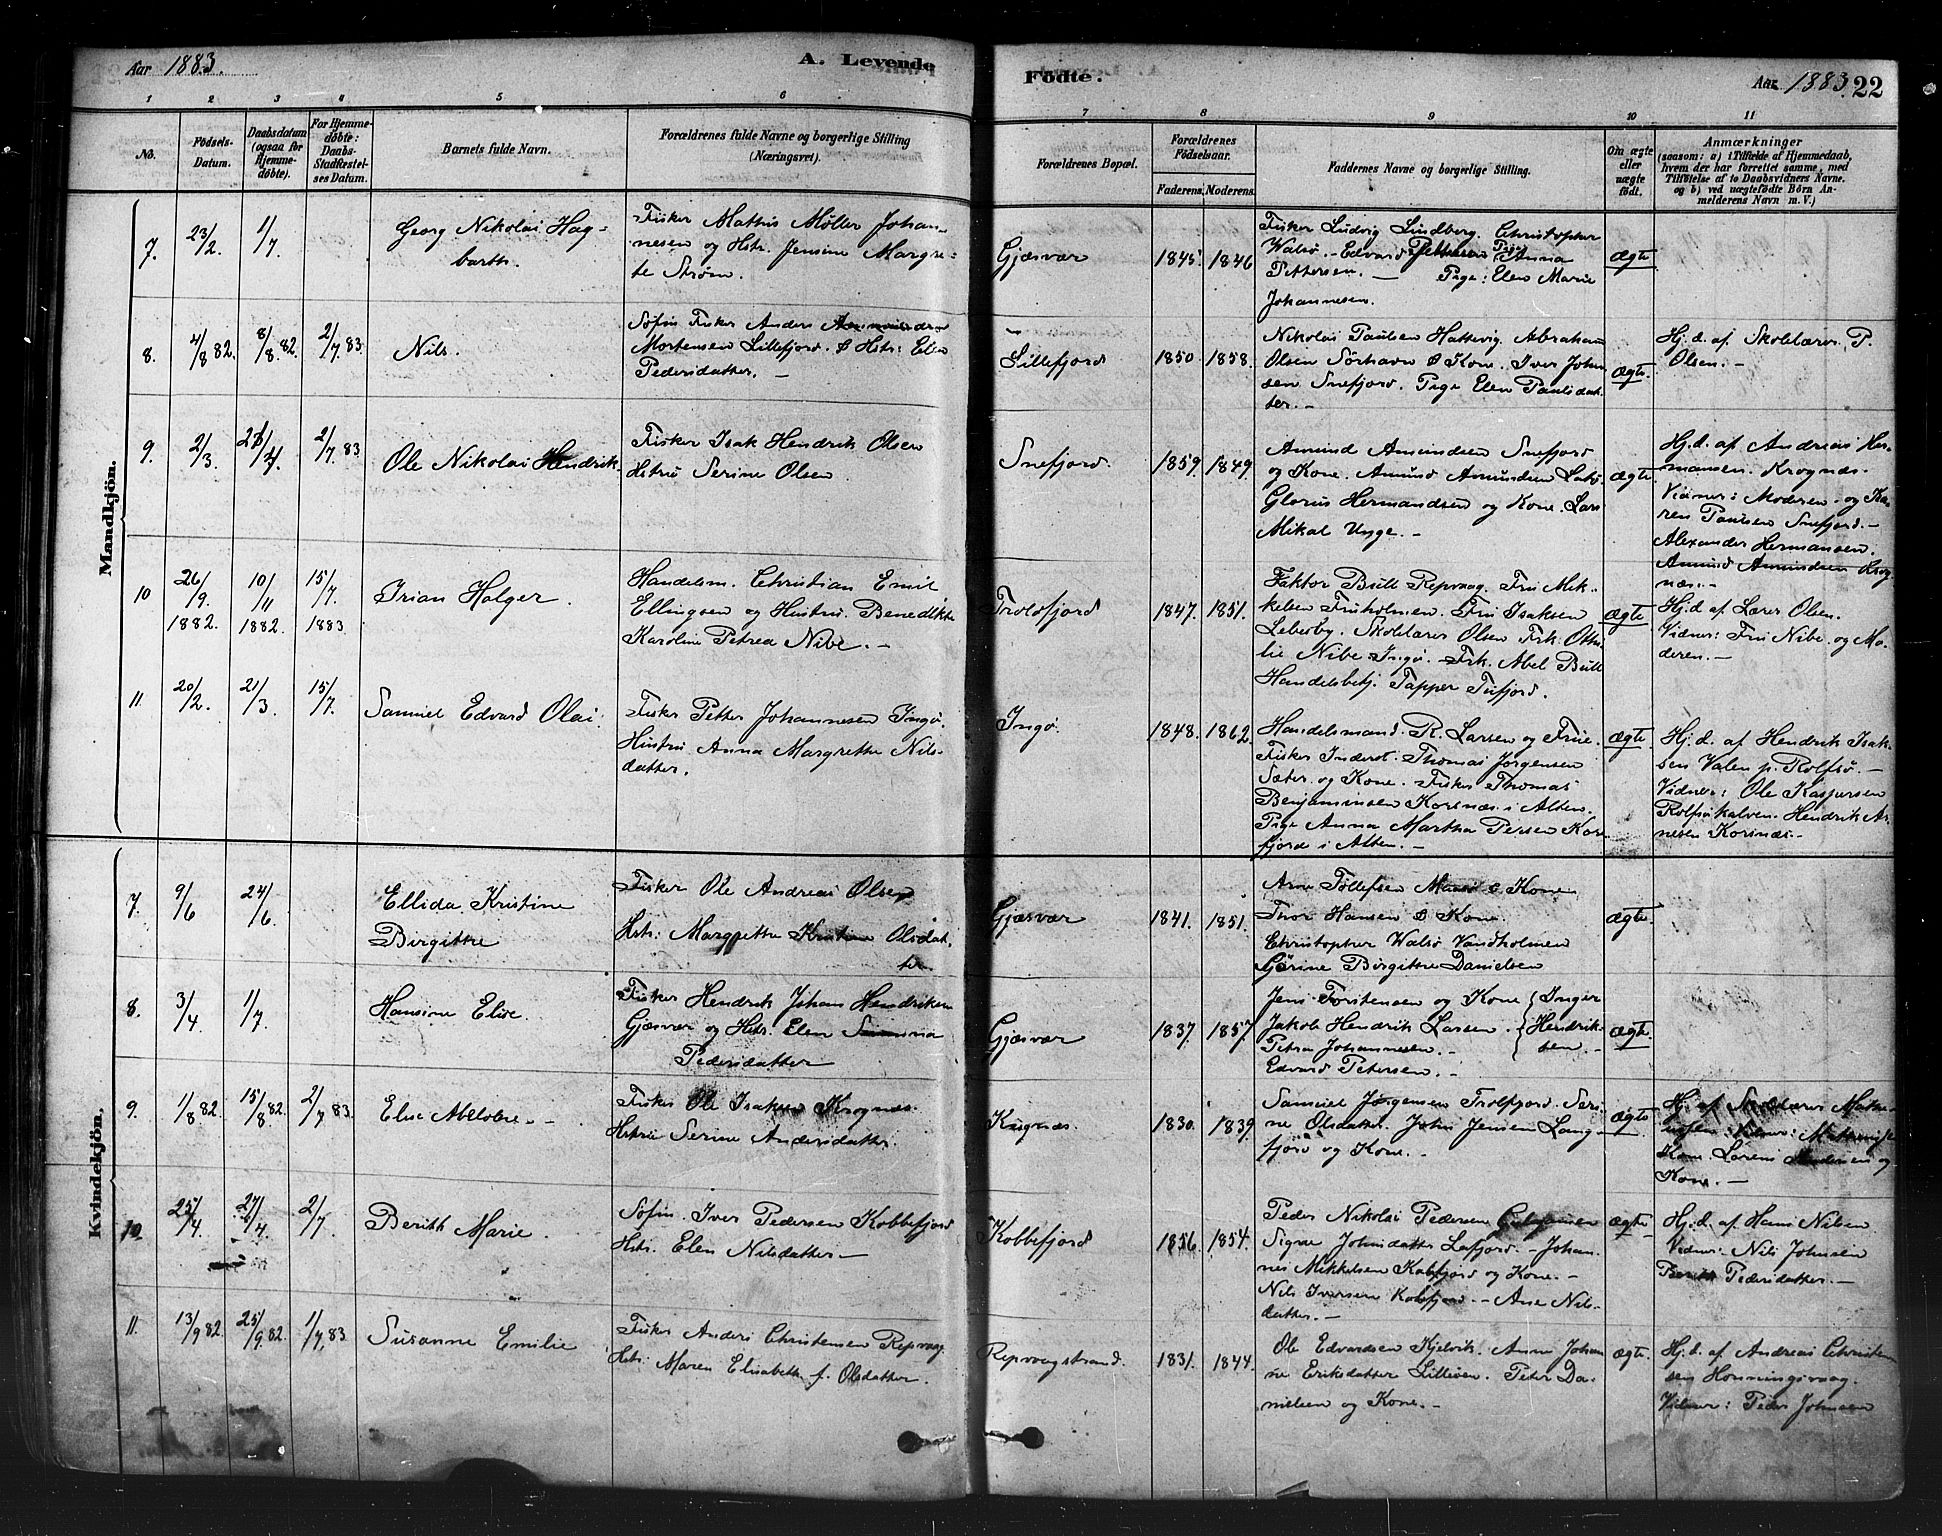 Aar 1883.
A. Levende
Födte.
Aar 1883. 22
1 2 3 4 5 6 7 8 9 10 11
No.
Födsels-
Datum.
Daabsdatum
(ogsaa for
Hjemme-
döbte).
For Hjemme-
döbte:
Daabs-
Stadfæstel-
ses Datum.
Barnets fulde Navn.
Forældrenes fulde Navne og borgerlige Stilling
(Næringsvei).
Forældrenes Bopæl.
Forældrenes
Födselsaar.
Faderens. Moderens.
Faddernes Navne og borgerlige Stilling.
Om ægte
eller
uægte
födt.
Anmærkninger
(saasom: a) i Tilfælde af Hjemmedaab,
hvem der har forrettet samme, med
Tilföielse af to Daabsvidners Navne.
og b) ved uægtefödte Börn An-
melderens Navn m. V.)
Mandkjön.
7. 23/2 1/7
Georg Nikolai Hag-
barth.
Fisker Mathis Møller Johan-
nesen og Hstr. Jensine Margre-
te Strøm.
Gjæsvær
1845. 1846
Fisker Ludvig Lindberg. Christopher
Walsø. Edvard Pettersen Pige Anna
Pettersen. — Pige: Elen Marie
Johannesen.
ægte
8. 4/8 82. 8/8 82. 2/7 83
Nils.
Søfin Fisker Anders
Mortensen Lillefjord. & Hstr: Elen
Pedersdatter. —
Lillefjord
1850. 1858.
Nikolai Paulsen Hattevig. Abraham
Olsen Sørhavn & Kone. Iver Johan-
sen Snefjord. Pige Elen Paulsdat-
ter. —
ægte
Hj. d. af Skolelærer P.
Olsen. —
9. 2/3 2/7 83
Ole Nikolai Hendrik.
Fisker Isak Hendrik Olsen
Hstru Serine Olsen.
Snefjord.
1859. 1849.
Amund Amundsen Snefjord
og Kone. Amund Amundsen
Hermandsen og Kone. Lars
Mikal Unge. —
ægte
Hj. d. af Andreas Her-
mansen. Krognæs.
Vidner: Moderen og Ka-
ren Paulsen Snefjord. —
Alexander Hermansen.
Amund Amundsen Krog-
næs. —
10 26/9 1882 10/11 1882. 15/7 1883
Irian Holger.
Handelsm. Christian Emil
Ellingsen og Hustru Benedikte
Karoline Petrea Nibe. —
Troldfjord
1847. 1851.
Faktor Bull Repvaag. Fru Mik-
kelsen Finkholmen. Fru Isaksen
Lebesby. Skolelærer Olsen Frk. Othi-
lie Nibe Ingø. Frk. Abel Bull
Handelsbetj. Tapper Tufjord.
ægte
Hj. d. af Lærer Olsen.
Vidner: Fru Nibe og Mo-
deren. —
11. 20/2 21/3 15/7
Samuel Edvard Olai.
Fisker Petter Johannesen Ingø.
Hustru Anna Margrethe Nils-
datter.
Ingø.
1848. 1862.
Handelsmand R. Larsen og Frue.
Fisker Inderst. Thomas Jørgensen
Sæter og Kone. Fisker Thomas
Benjaminsen Korsnæs i Alten.
Pige Anna Martha Persen Kor-
fjord i Alten. —
ægte
Hj. d. af Hendrik Isak-
sen Valen p. Rolfsø. —
Vidner: Ole Kaspersen
Rolfsøkalven. Hendrik Ar-
nesen Korsnæs. —
Kvindekjön.
7. 9/6 24/6
Ellida Kristine
Birgitte
Fisker Ole Andreas Olsen
Hstr: Margrette Kristine Olsdat-
ter
Gjæsvær
1841. 1851.
Arne Tollefsen Masø & Kone
Thor Hansen & Kone.
Christopher Walsø Vandholmen
Gjørine Birgitte Danielsen
ægte
8. 3/4 1/7
Hansine Elise.
Fisker Hendrik Johan Hendriksen
Gjæsvær og Hstr. Elen Susanna
Pedersdatter
Gjæsvær
1837. 1857.
Jens Torstensen og Kone { Inger
Jakob Hendrik Larsen. { Hendrik-
Petra Johannesen. — { sen. —
Edvard Petersen. —
ægte
9. 1/8 82 15/8 82. 2/7 83.
Else —
Fisker Ole Isaksen Krognæs.
Hstru Serine Andersdatter.
Krognæs.
1830. 1839.
Samuel Jørgensen Trolfjord. Seri-
ne Olsdatter. John Jensen Lang-
fjord og Kone. —
ægte
Hj. af Skolelærer Mathi-
Vidner:
Kone. Larens Andersens og
Kone. —
10. 25/4 27/4 2/7
Berith Marie.
Søfin. Iver Pedersen Kobbefjord
Hstr. Elen Nilsdatter —
Kobbefjord
1856. 1854.
Peder Nikolai Pedersen
Signe Johnsdatter Lafjord. — Johan-
nes Mikkelsen Kobfjord og Kone. —
Nils Iversen Kobfjord. — Ane Nils-
datter. —
ægte
Hj. d. af Hans Nilsen
Vidner: Nils Johnsen
Berith Pedersdatter. —
11. 13/9 82. 25/9 82 1/7 83
Susanne Emilie
Fisker Anders Christensen Repvaag
Hstr: Maren Elisabeth f. Olsdatter.
Repvaagstrand.
1831. 1844.
Ole Edvardsen Kjelvik. Anne Johan-
ne Eriksdatter Lilleven. Peter Da-
nielsen og Kone. —
ægte.
Hj. d. af Andreas Christen-
sen Honningsvaag.
Vidner: Peder Johnsen